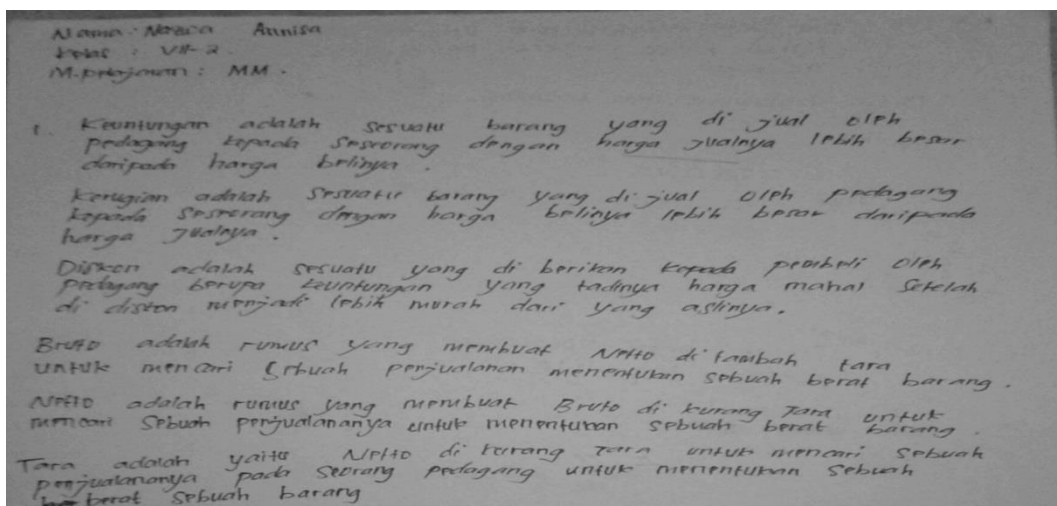 Nama : Nazwa Annisa
Kelas : VII-2.
M.pelajaran : MM.
1. Keuntungan adalah sesuatu barang yang di jual oleh
pedagang kepada seseorang dengan harga jualnya lebih besar
daripada harga belinya.
Kerugian adalah sesuatu barang yang di jual oleh pedagang
kepada seseorang dengan harga belinya lebih besar daripada
harga jualnya.
Diskon adalah sesuatu yang di berikan kepada pembeli oleh
pedagang berupa keuntungan yang tadinya harga mahal setelah
di diskon menjadi lebih murah dari yang aslinya.
Bruto adalah rumus yang membuat Netto di tambah tara
untuk mencari sebuah penjualanan menentukan sebuah berat barang.
Netto adalah rumus yang membuat Bruto di kurang Tara untuk
mencari sebuah penjualananya untuk menentukan sebuah berat barang.
Tara adalah yaitu Netto di kurang Tara untuk mencari sebuah
penjualananya pada seorang pedagang untuk menentukan sebuah
berat sebuah barang